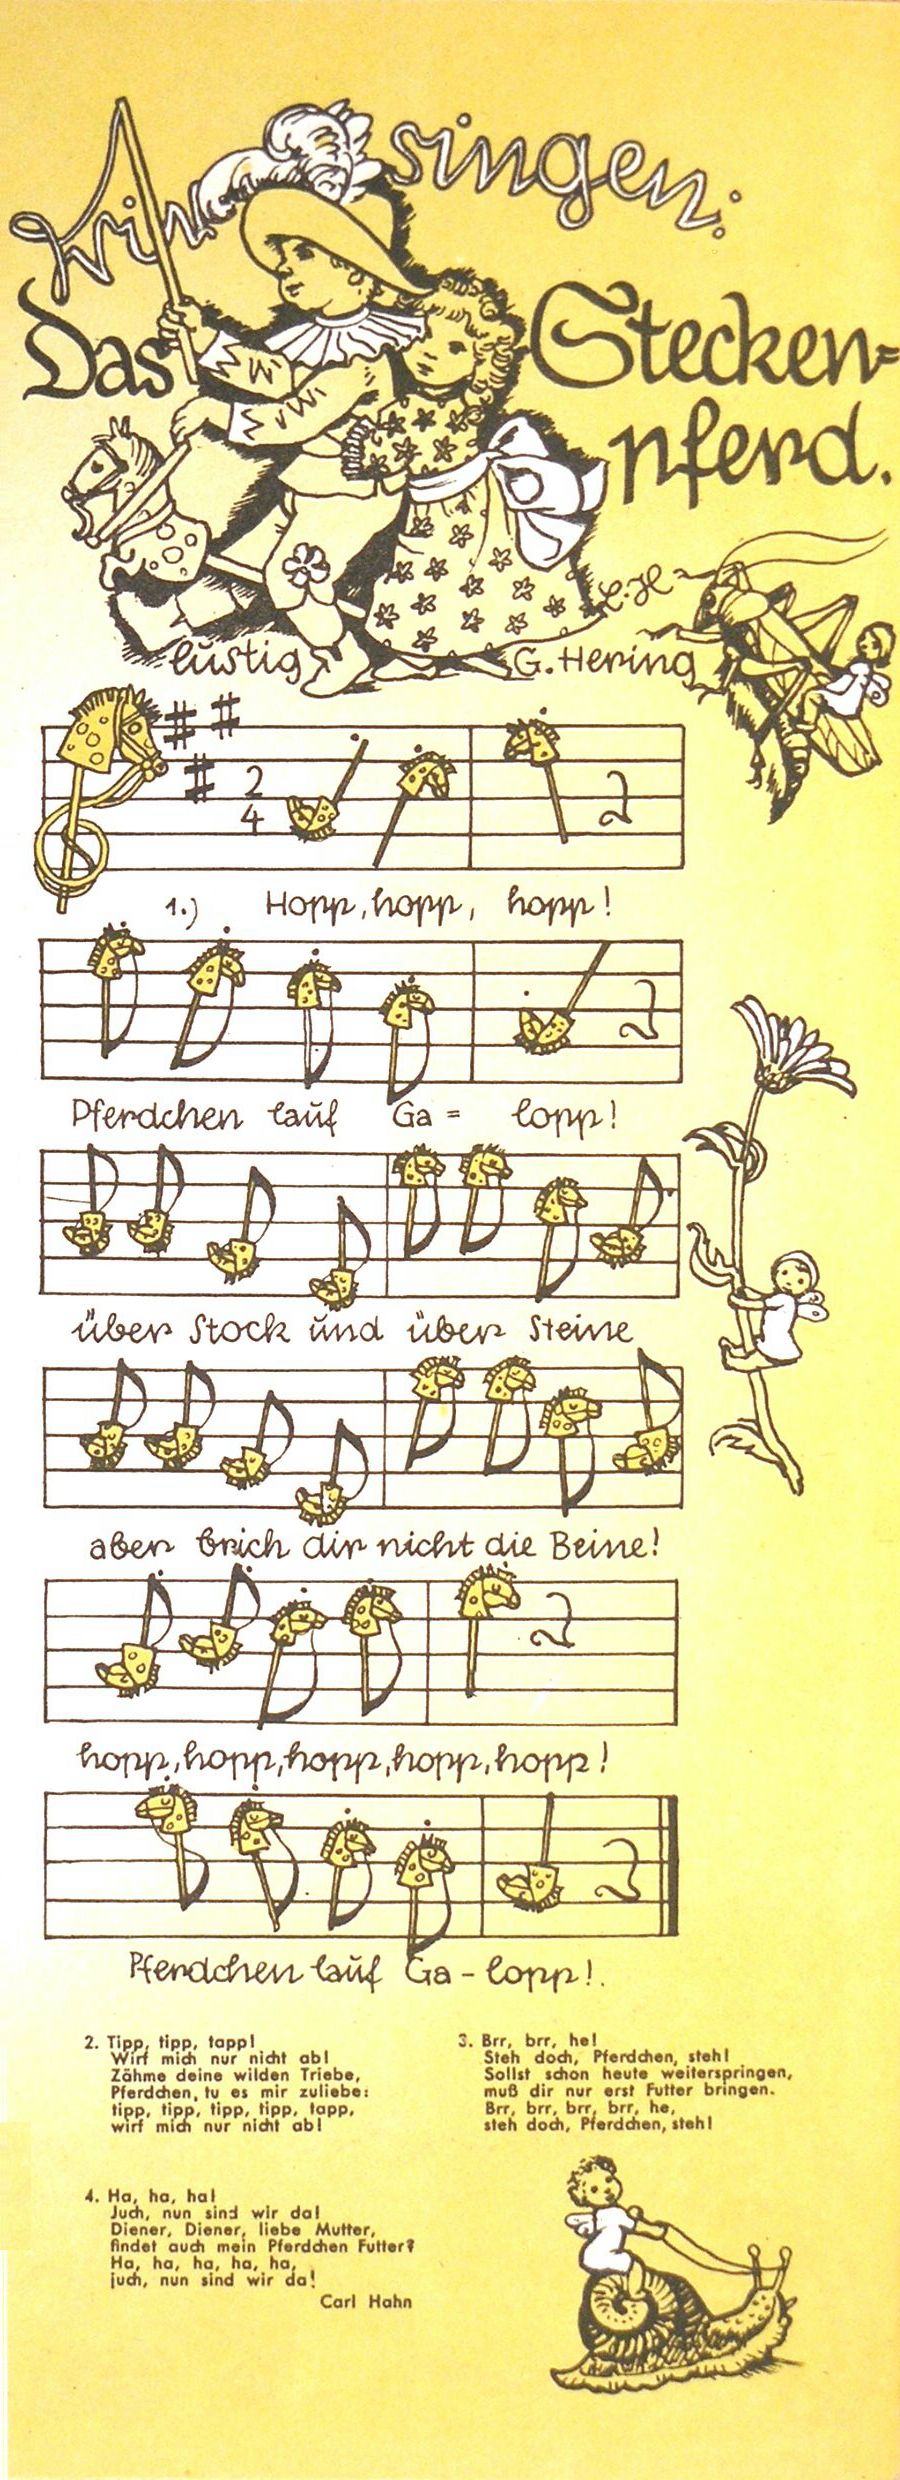 Wir singen:
Das Stecken=
pferd.
L.H
lustig G. Hering
2
4
1.) Hopp, hopp, hopp!
Pferdchen lauf Ga = lopp!
über Stock und über Steine
aber brich dir nicht die Beine!
hopp, hopp, hopp, hopp, hopp!
Pferdchen lauf Ga - lopp!.
2. Tipp, tipp, tapp!
Wirf mich nur nicht ab!
Zähme deine wilden Triebe,
Pferdchen, tu es mir zuliebe:
tipp, tipp, tipp, tipp, tapp,
wirf mich nur nicht ab!
3. Brr, brr, he!
Steh doch, Pferdchen, steh!
Sollst schon heute weiterspringen,
muß dir nur erst Futter bringen.
Brr, brr, brr, brr, he,
steh doch, Pferdchen, steh!
4. Ha, ha, ha!
Juch, nun sind wir da!
Diener, Diener, liebe Mutter,
findet auch mein Pferdchen Futter?
Ha, ha, ha, ha, ha,
juch, nun sind wir da!
Carl Hahn